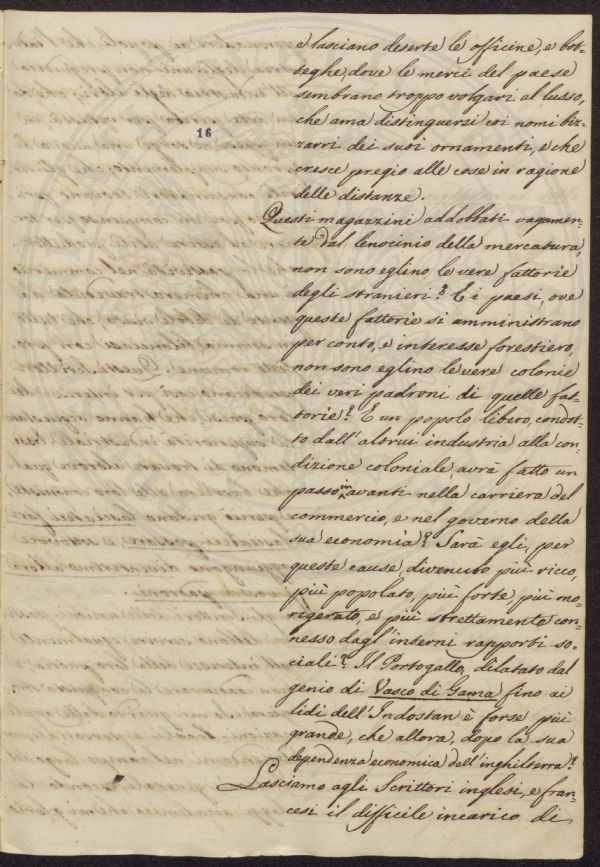 16
e lasciano deserte le officine, e bot-
teghe, dove le merci del paese
sembrano troppo volgari al lusso,
che ama distinguersi coi nomi biz-
zarri dei suoi ornamenti, e che
cresce pregio alle cose in ragione
delle distanze.
Questi magazzini addobbati vagamen-
te dal lenocinio della mercatura,
non sono eglino le vere fattorie
degli stranieri? E i paesi, ove
queste fattorie si amministrano
per conto, e interesse forestiero,
non sono eglino le vere colonie
dei veri padroni di quelle fat-
torie? E un popolo libero, condot-
to dall'altrui industria alla con-
dizione coloniale avrà fatto un
passo in avanti nella carriera del
commercio, e nel governo della
sua economia? Sarà egli, per
queste cause, divenuto più ricco,
più popolato, più forte, più mo-
rigerato, e più strettamente con-
nesso dagl'interni rapporti so-
ciali? Il Portogallo, dilatato dal
genio di Vasco di Gama fino ai
lidi dell'Indostan è forse più
grande, che allora, dopo la sua
dependenza economica dall'inghilterra?
Lasciamo agli Scrittori inglesi, e fran-
cesi il difficile incarico di